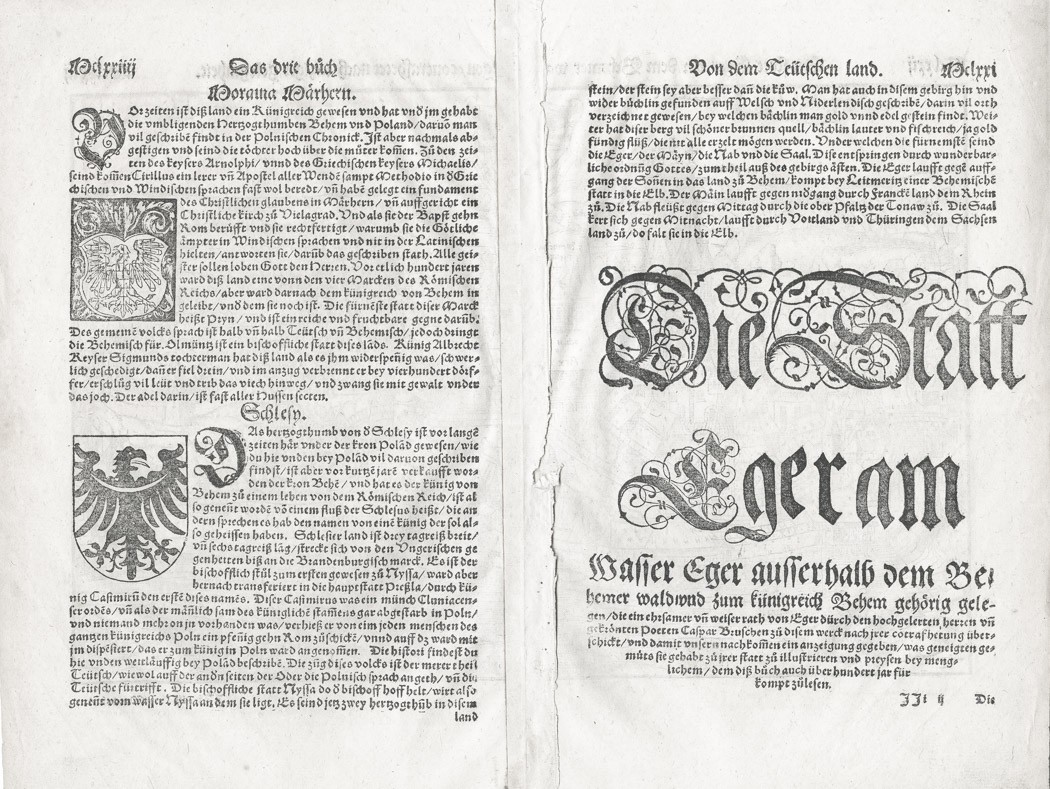 Mclxxiiij Das drit bůch
Moravia Mårhern.
VOr zeiten ist diß land ein Künigreich gewesen vnd hat vnd jm gehabt
die vmbligenden Hertzogthumben Behem vnd Poland/daruõ man
vil geschribẽ findt in der Polnischen Chronick. Jst aber nachmals ab-
gestigen vnd seind die tõchter hoch über die můter kom̃en. Zů den zei-
ten des keysers Arnolphi/vnnd des Griechischen keysers Michaelis/
seind kom̃en Cirillus ein lerer vñ Apostel aller Wendẽ sampt Methodio in ð Grie
chischen vnd Windischen sprachen fast wol beredt/vñ habẽ gelegt ein fundament
des Christlichen glaubens in Mårhern/vñ auffgericht ein
Christliche kirch zů Vielagrad. Vnd als sie der Bapst gehn
Rom berüfft vnd sie rechtfertigt/warumb sie die Gõtliche
åmpter in Windischen sprachen vnd nit in der Latinischen
hielten/antworten sie/darüb das geschriben stath. Alle gei-
ster sollen loben Gott den Herren. Vor etlich hundert jaren
ward diß land eine vonn den vier Marcken des Rõmischen
Reichs/aber ward darnach dem künigreich von Behem in
geleibt/vnd dem sie noch ist. Die fürnẽste statt diser Marck
heißt Pryn/vnd ist ein reiche vnd fruchtbare gegne darüb.
Des gemeinẽ volcks sprach ist halb vñ halb Teütsch vñ Behemisch/jedoch dringt
die Behemisch für. Olmüntz ist ein bischoffliche statt dises lãds. Künig Albrecht
Keyser Sigmunds tochterman hat diß land als es jhm widerspeñig was/schwer-
lich geschedigt/dañ er fiel drein/vnd im anzug verbrennt er bey vierhundert dõrf-
fer/erschlůg vil leüt vnd trib das viech hinweg/vnd zwang sie mit gewalt vnder
das joch. Der adel darin/ist fast aller Hussen secten.
Schlesy.
DAs hertzogthumb von ð Schlesy ist vor langẽ
zeiten hår vnder der kron Polãd gewesen/wie
du hie vnden bey Polãd vil daruon geschriben
findst/ist aber vor kurtzẽ jarẽ verkaufft wor-
den der kron Behẽ/vnd hat es der künig von
Behem zů einem lehen von dem Rõmischen Reich/ist al
so genent wordẽ võ einem fluß der Schlesus heißt/die an
dern sprechen es hab den namen von einẽ künig der sol al-
so geheissen haben. Schlesier land ist drey tagreiß breit/
vñ sechs tagreiß lãg/streckt sich von den Vngerischen ge
genheiten biß an die Brandenburgisch marck. Es ist der
bischofflich stůl zum ersten gewesen zů Nyssa/ward aber
hernach transferiert in die hauptstatt Preßla/durch kü-
nig Casimirũ den erstẽ dises namẽs. Diser Casimirus was ein münch Cluniacen-
ser ordẽs/vñ als der mãñlich sam des künglichẽ stam̃es gar abgestarb in Poln/
vnd niemand mehr on jn vorhanden was/verhieß er von eim jeden menschen des
gantzen künigreichs Poln ein pfenig gehn Rom zůschickẽ/vnnd auff dz ward mit
jm dispẽsiert/das er zum künig in Poln ward angenom̃en. Die histori findest du
hie vnden weitläuffig bey Polãd beschribẽ. Die züg dises volcks ist der merer theil
Teütsch/wiewol auff der andñ seiten der Oder die Polnisch sprach angeth/vñ die
Teütsche fürtrifft. Die bischoffliche statt Nyssa do ð bischoff hoff helt/wirt also
genent vom wasser Nyssa an dem sie ligt. Es seind jetz zwey hertzogthüb in disem
land
Von dem Teütschen land. Mclxxi
stein/der stein sey aber besser dañ die küw. Man hat auch in disem gebirg hin vnd
wider büchlin gefunden auff Welsch vnd Niderlendisch geschribẽ/darin vil orth
verzeichnet gewesen/bey welchen båchlin man gold vnnd edel gstein findt. Wei-
ter hat diser berg vil schõner brunnen quell/båchlin lauter vnd fischreich/ja gold
fündig flüß/die nit alle erzelt mõgen werden. Vnder welchen die fürnemstẽ seind
die Eger/der Måyn/die Nab vnd die Saal. Dise entspringen durch wunderbar-
liche ordnũg Gottes/zum theil auß des gebirgs åsten. Die Eger laufft gegẽ auff-
gang der Soñen in das land zů Behem/kompt bey Leitmeritz einer Behemischẽ
statt in die Elb. Der Måin laufft gegen nidgang durch Franckẽ land dem Rhein
zů. Die Nab fleüßt gegen Mittag durch die ober Pfaltz der Tonaw zů. Die Saal
kert sich gegen Mitnacht/laufft durch Voitland vnd Thüringen dem Sachsen
land zů/do falt sie in die Elb.
Die Statt
Eger am
Wasser Eger ausserhalb dem Be-
hemer wald vnd zum künigreich Behem gehõrig gele-
gen/die ein ehrsamer vñ weiser rath von Eger dürch den hochgelerten herren vñ
gekrõnten Poeten Caspar Bruschen zů disem werck nach jrer cõtrafhetung über-
schickt/vnd damit vnsern nachkom̃en ein anzeigung gegeben/was geneigten ge-
můts sie gehabt zů jrer statt zů illustrieren vnd preysen bey meng-
lichem/dem diß bůch auch über hundert jar für
kompt zůlesen.
JJi ij Die